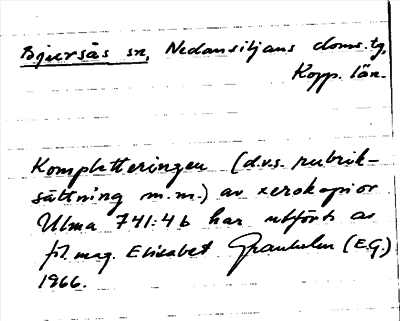 Bjursås sn, Nedansiljans doms.tg,
Kopp. län.
Kompletteringen (d.v.s. rubrik-
sättning m.m.) av xerokopior
Ulma 741:4b har utförts av
fil.mag. Elisabet Granholm (E.G.)
1966.